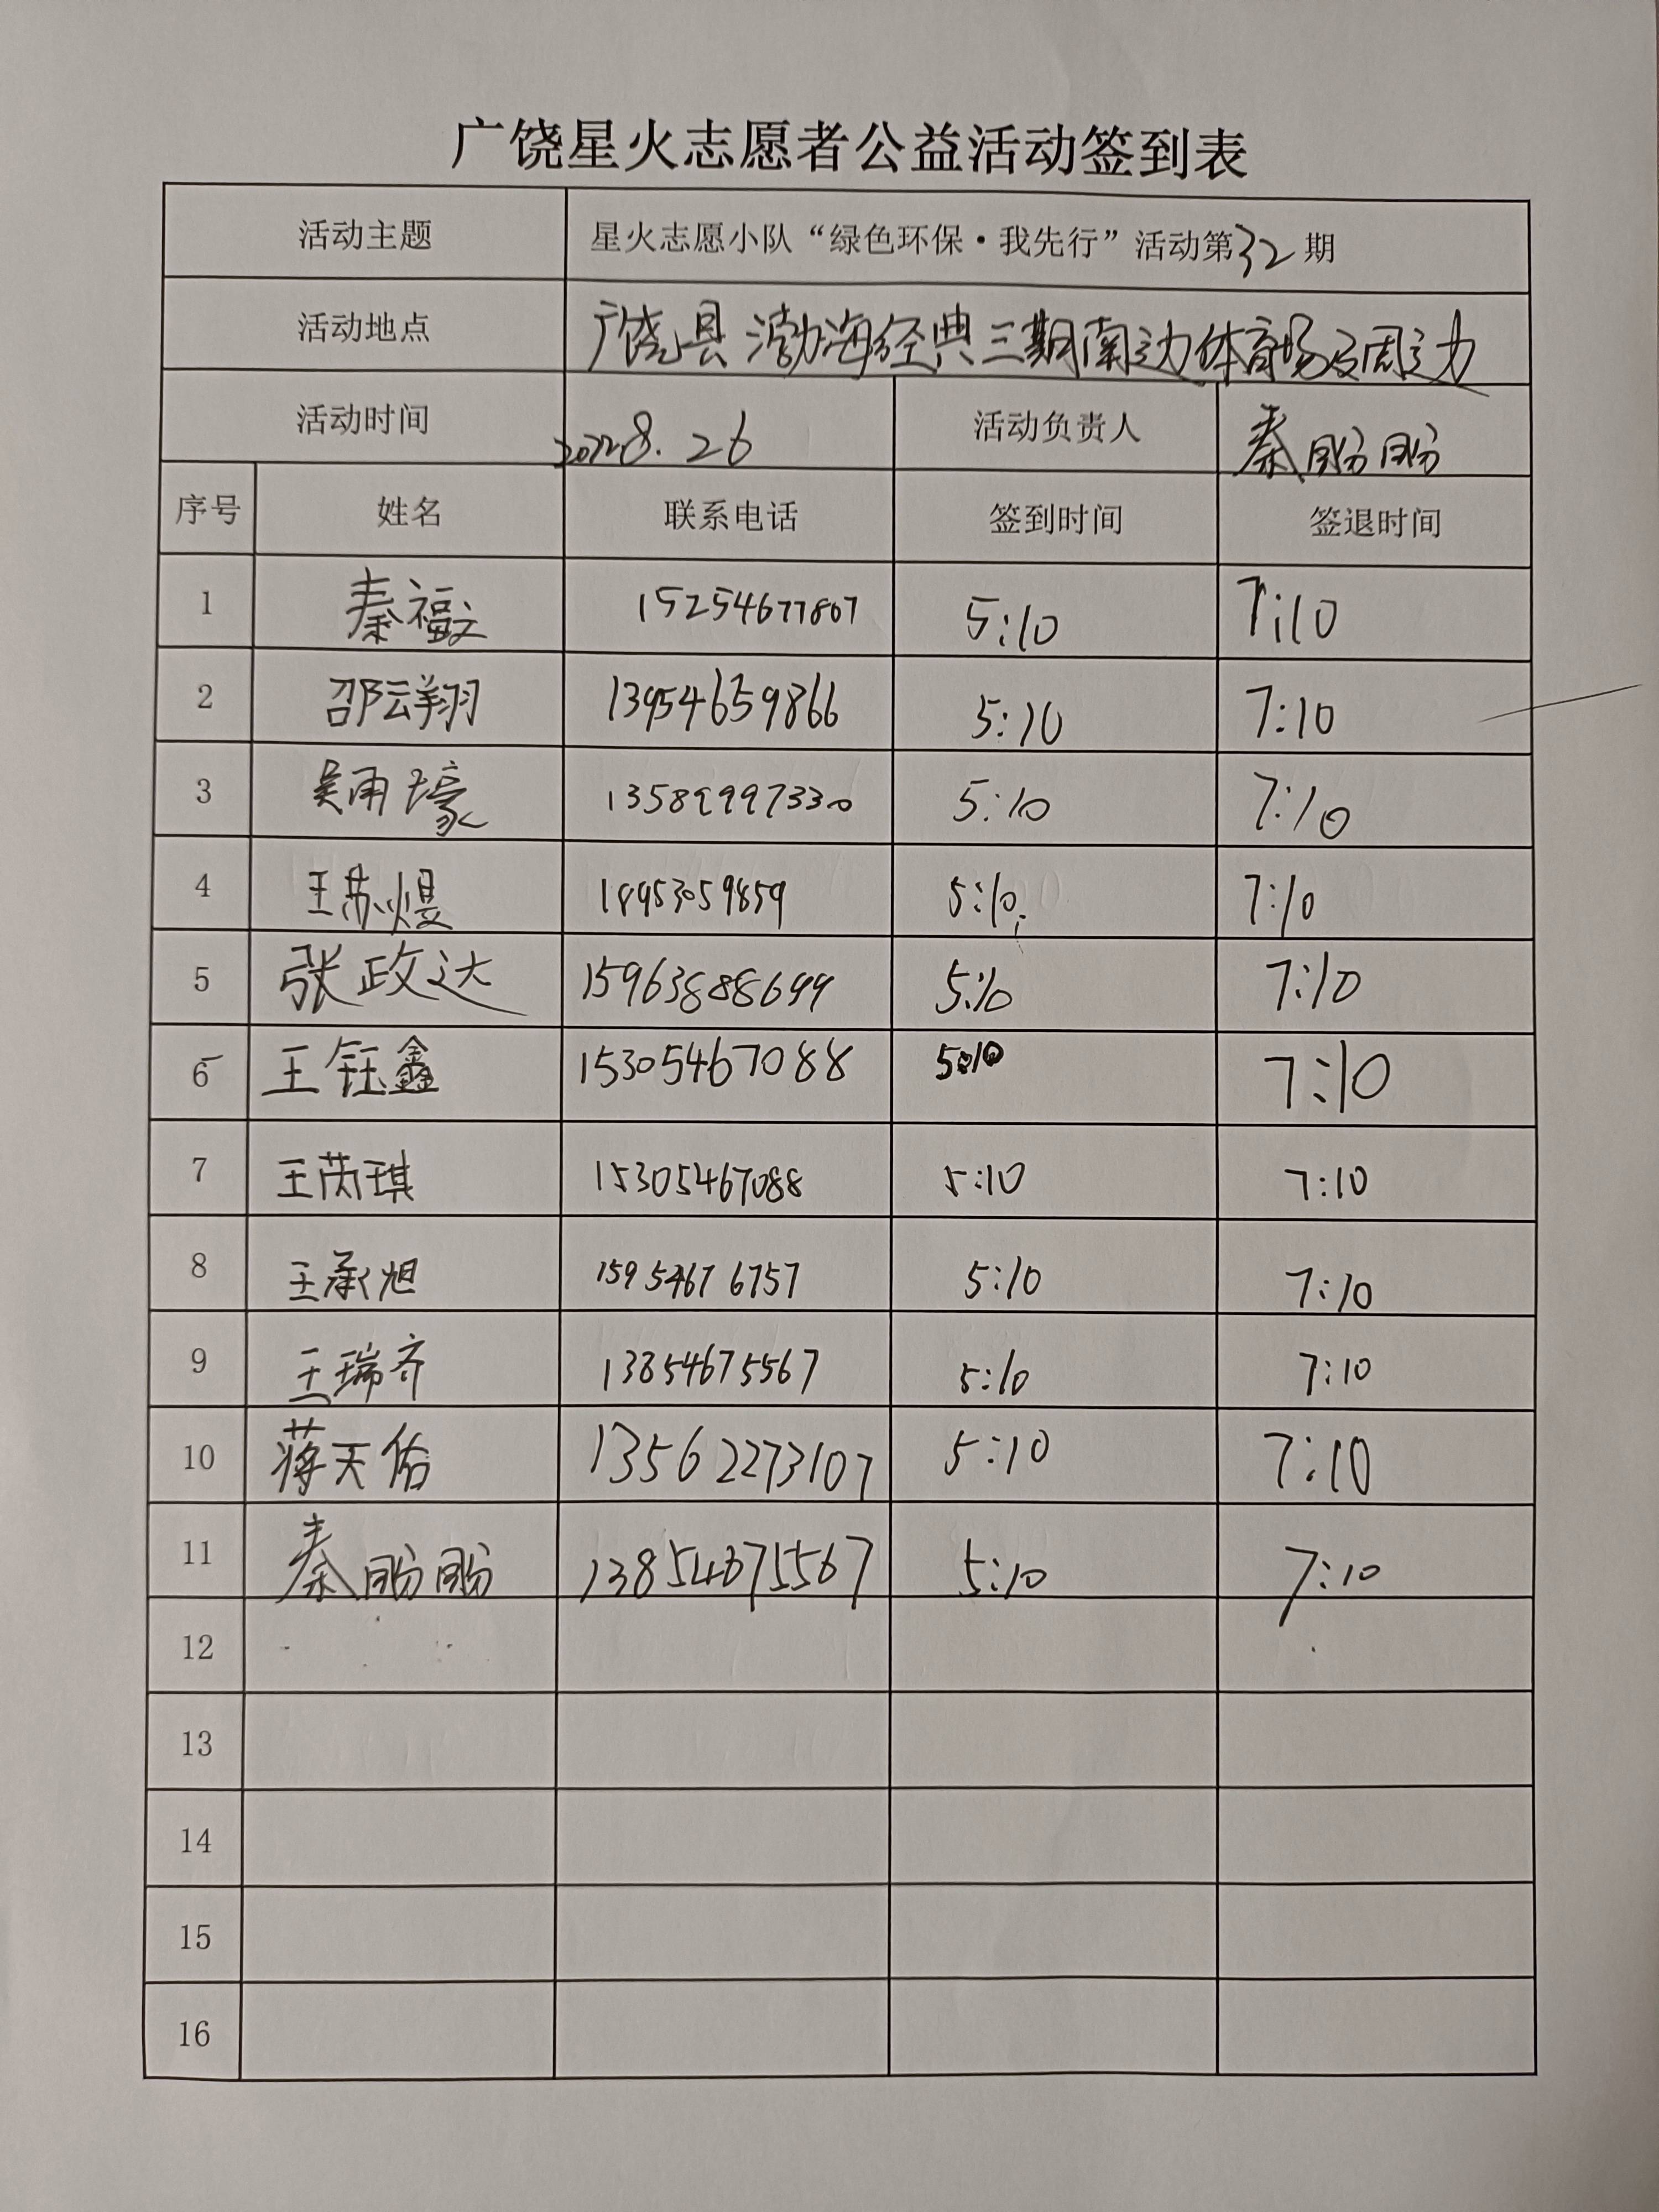 广饶星火志愿者公益活动签到表
活动主题 星火志愿小队“绿色环保·我先行”活动第32期
活动地点 广饶县渤海经典三期南边体育场及周边
活动时间 2022 8.26 活动负责人 秦盼盼
序号 姓名 联系电话 签到时间 签退时间
1 秦福文 15254677807 5:10 7:10
2 邵云翔 13954659866 5:10 7:10
3 吴雨壕 13589997330 5:10 7:10
4 王苏煜 18953059859 5:10 7:10
5 张政达 15963888699 5:10 7:10
6 王钰鑫 15305467088 5:10 7:10
7 王芮琪 15305467088 5:10 7:10
8 王承旭 15954676757 5:10 7:10
9 王瑞齐 13854675567 5:10 7:10
10 蒋天佑 13562273107 5:10 7:10
11 秦盼盼 13854675567 5:10 7:10
12
13
14
15
16